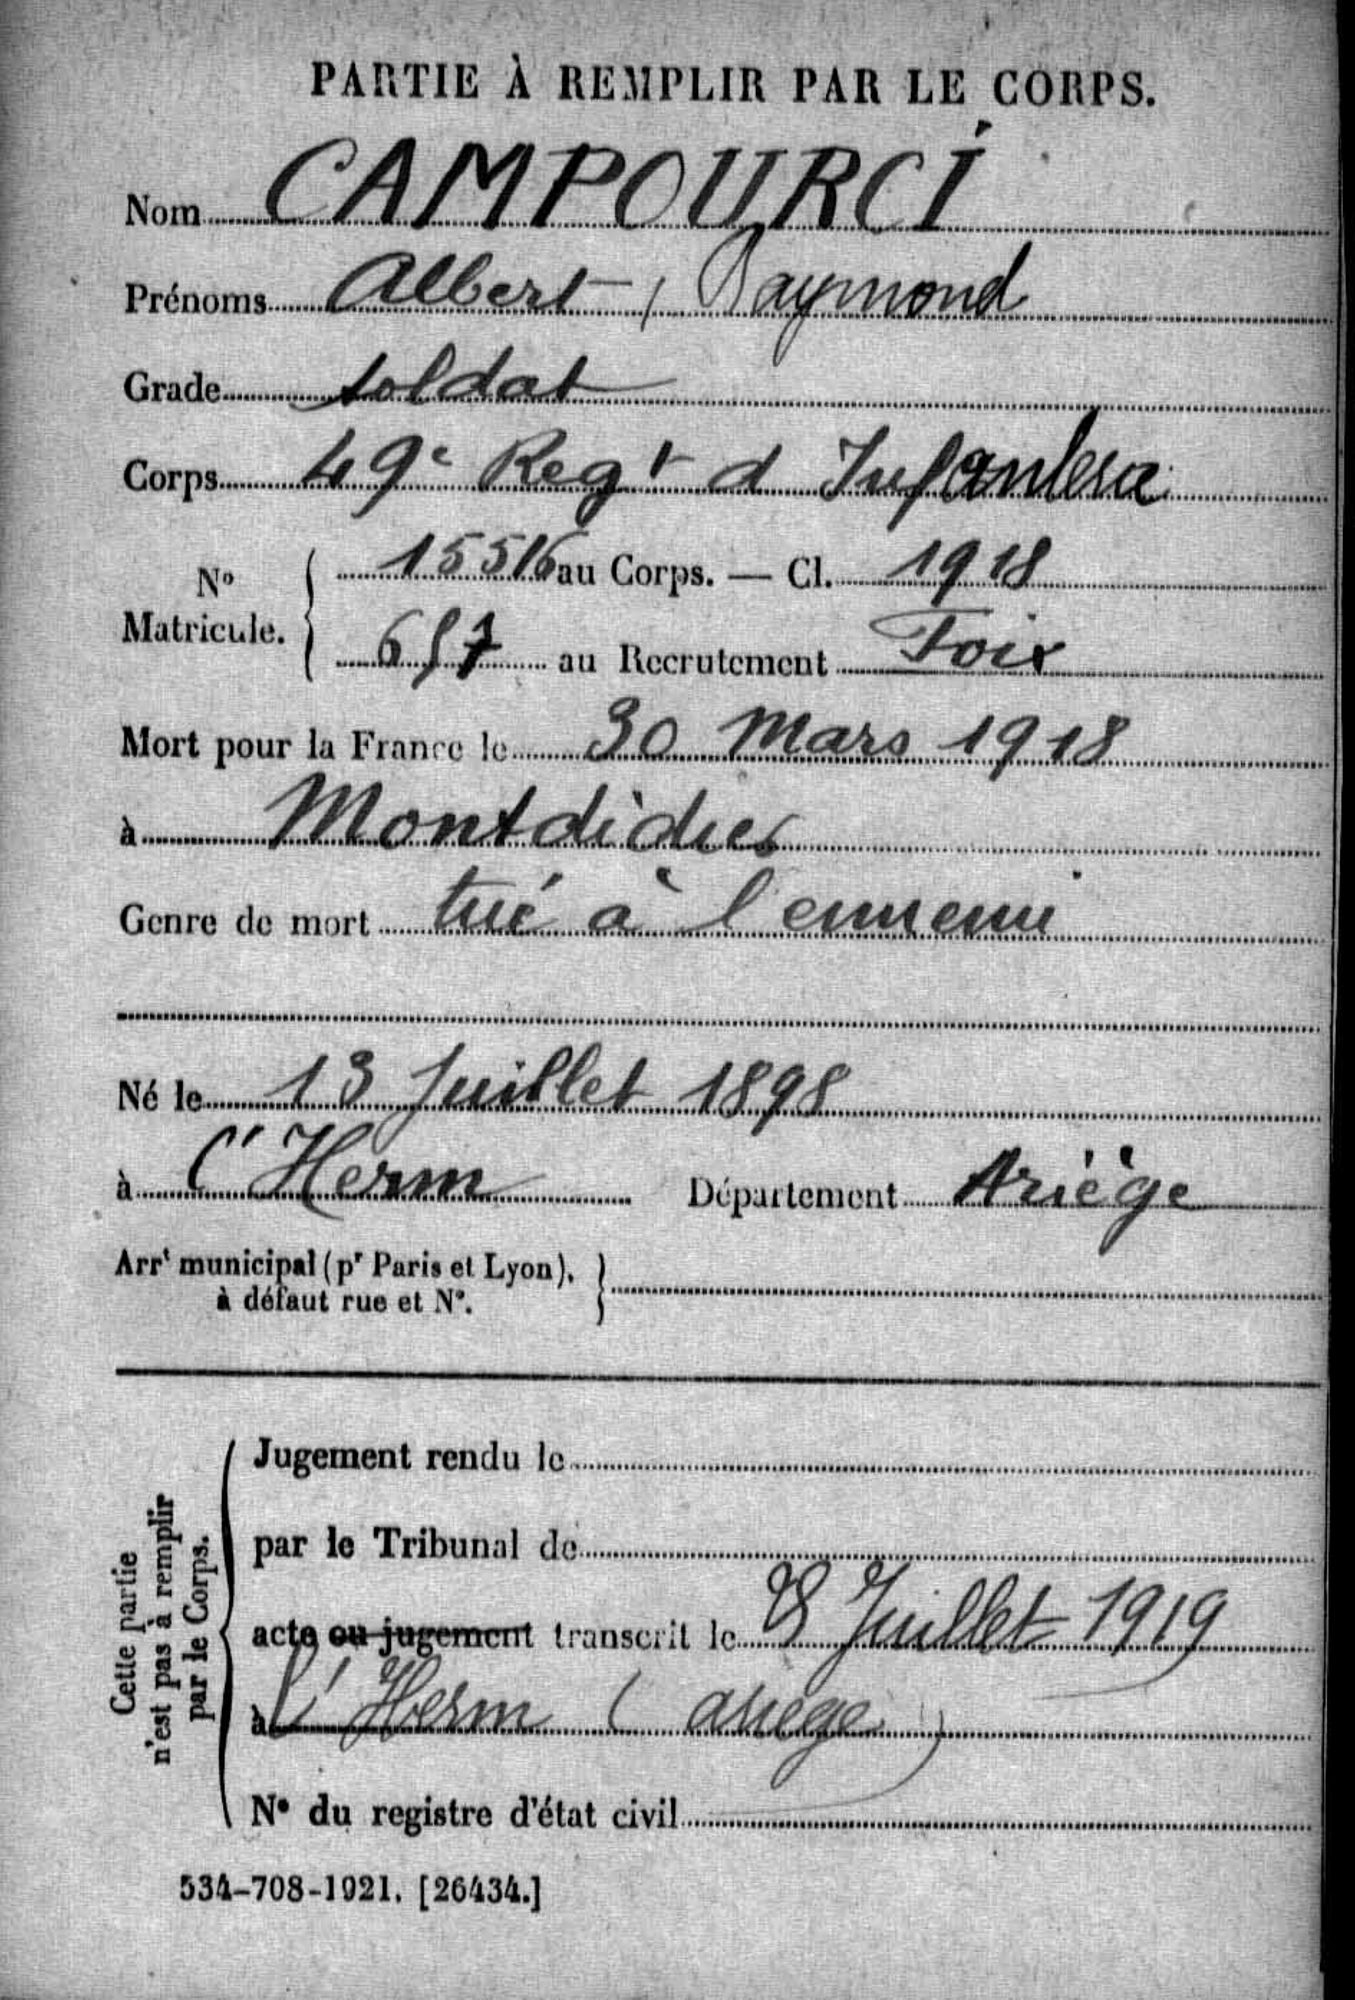 PARTIE À REMPLIR PAR LE CORPS.
Nom CAMPOURCI
Prénoms Albert, Raymond
Grade soldat
Corps 49e Regt d Infanterie
No Matricule. 15516 au Corps. — Cl. 1918
657 au Recrutement Foix
Mort pour la France le 30 Mars 1918
à Montdidier
Genre de mort tué à l'ennemi
Né le 13 Juillet 1898
à l'Herm Département Ariège
Arrt municipal (pr Paris et Lyon),
à défaut rue et No.
Cette partie
n'est pas à remplir
par le Corps.
Jugement rendu le
par le Tribunal de
acte ou jugement transcrit le 28 Juillet 1919
à l'Herm (ariège)
No du registre d'état civil
534-708-1921. [26434.]